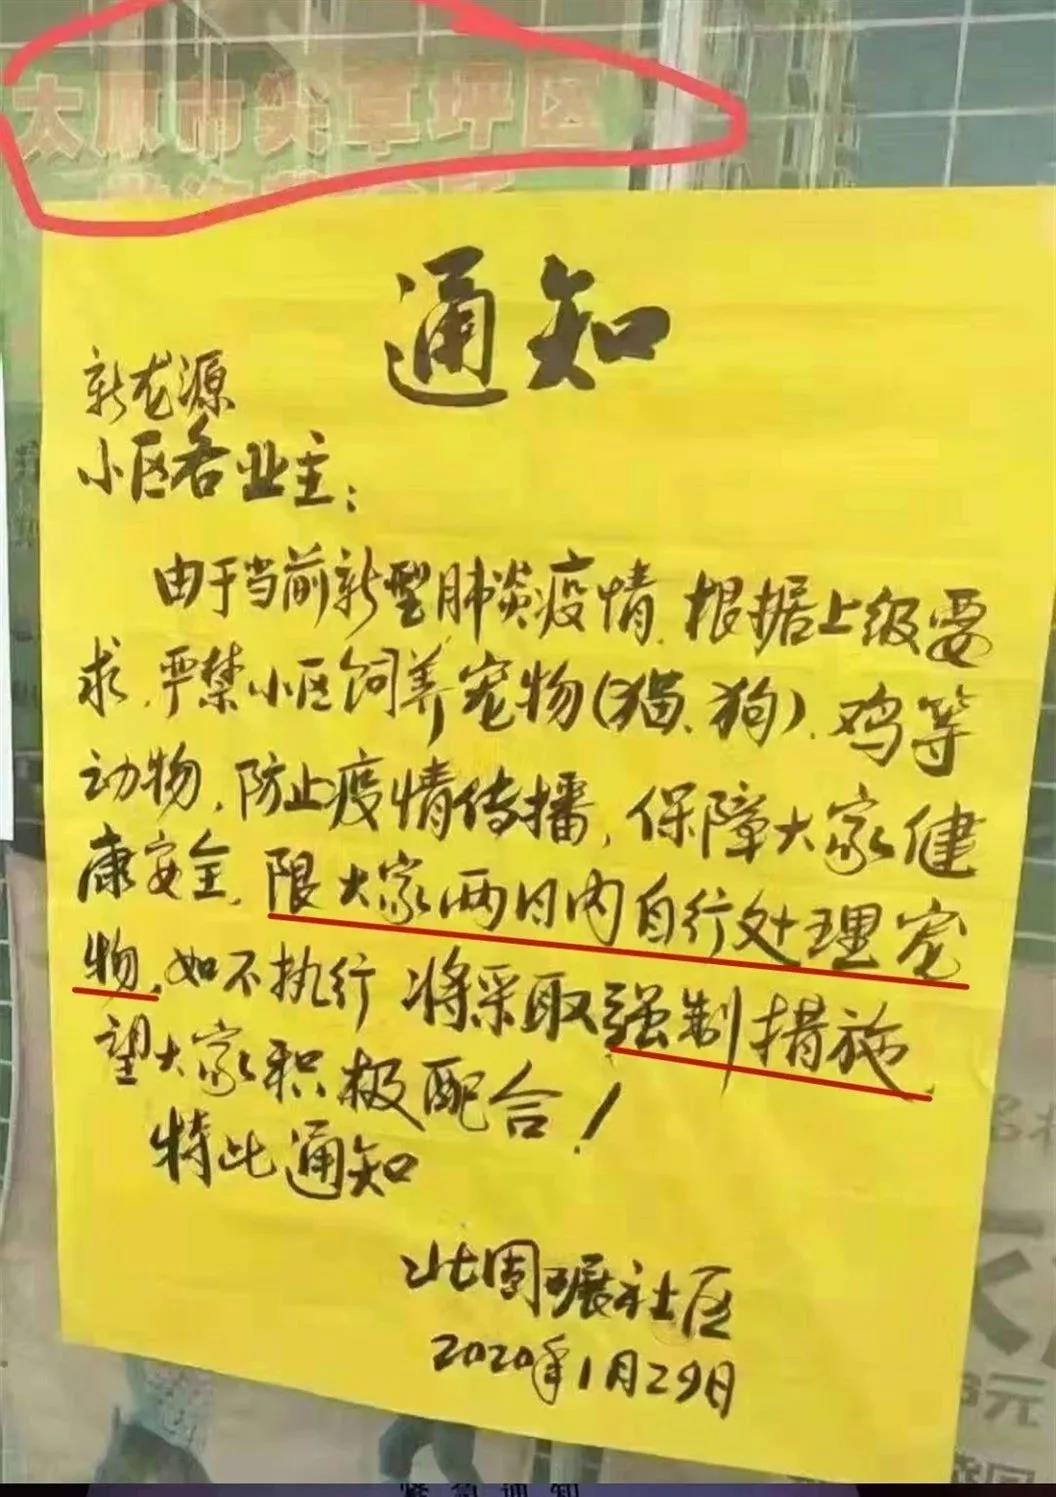 太原市尖草坪区
通知
新龙源
小区各业主:
由于当前新型肺炎疫情.根据上级要
求.严禁小区饲养宠物(猫、狗).鸡等
动物,防止疫情传播,保障大家健
康安全.限大家两日内自行处理宠
物.如不执行 将采取强制措施.
望大家积极配合!
特此通知
北固碾社区
2020年1月29日
紧急通知